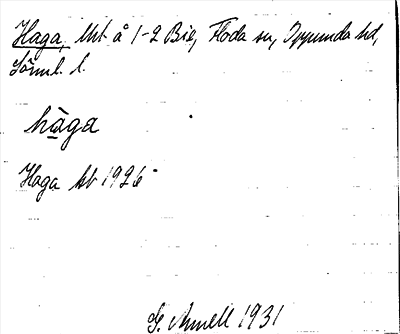 Haga, lht å 1-2 Bie, Floda sn, Oppunda hd,
Söml. l.
hàga
Haga kb 1926
G. Annell 1931